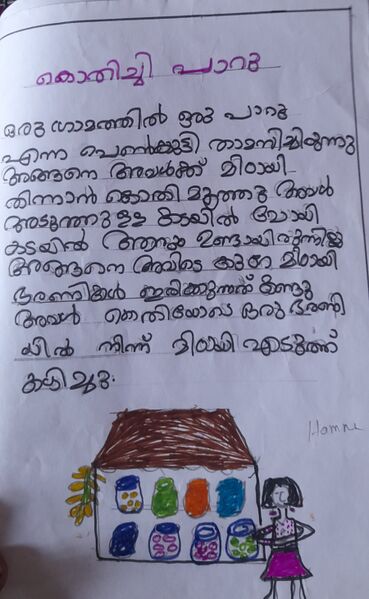 കൊതിച്ചി പാറു
ഒരു ഗ്രാമത്തിൽ ഒരു പാറു
എന്ന പെൺകുട്ടി താമസിച്ചിരുന്നു
അങ്ങനെ അവൾക്ക് മിഠായി
തിന്നാൻ കൊതി മൂത്തു അവൾ
അടുത്തുള്ള കടയിൽ പോയി
കടയിൽ ആരും ഉണ്ടായിരുന്നില്ല
അങ്ങനെ അവിടെ കുറേ മിഠായി
ഭരണികൾ ഇരിക്കുന്നത് കണ്ടു
അവൾ കൊതിയോടെ ഒരു ഭരണി
യിൽ നിന്ന് മിഠായി എടുത്ത്
കഴിച്ചു.